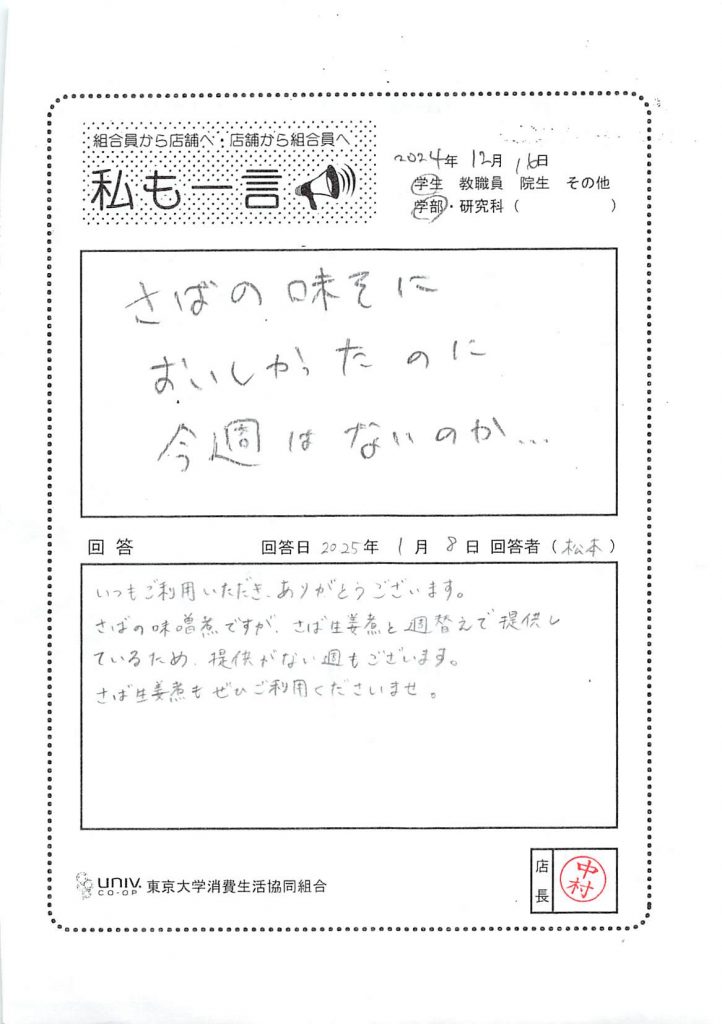 組合員から店舗へ・店舗から組合員へ
私も一言
2024年 12月 16日
学生 教職員 院生 その他
学部・研究科（ ）
さばの味そに
おいしかったのに
今週はないのか...
回答 回答日 2025年 1月 8日 回答者（松本）
いつもご利用いただき、ありがとうございます。
さばの味噌煮ですが、さば生姜煮と週替えで提供し
ているため、提供がない週もございます。
さば生姜煮もぜひご利用くださいませ。
UNIV. CO-OP 東京大学消費生活協同組合
店長 中村